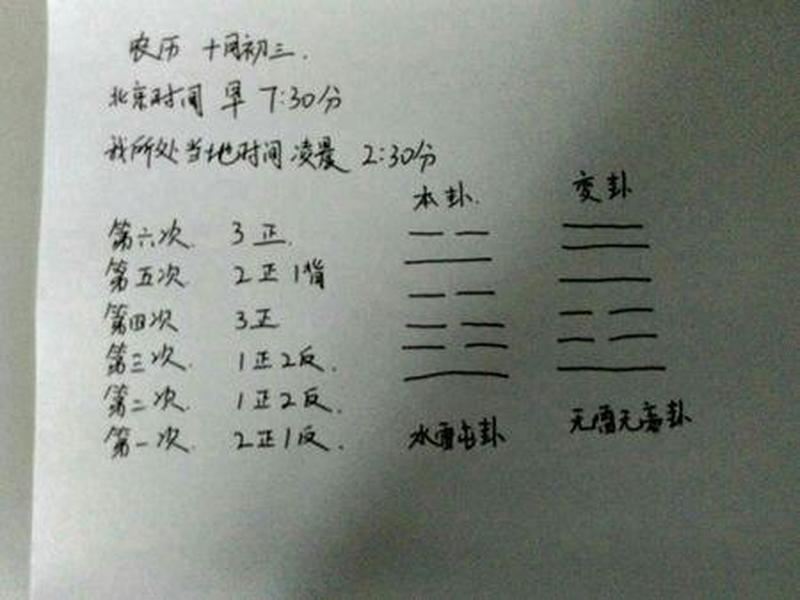 农历 十月初三.
北京时间 早 7:30分
我所处当地时间 凌晨 2:30分
本卦. 变卦
第六次. 3正.
第五次 2正1背
第四次 3正
第三次. 1正2反.
第二次. 1正2反.
第一次. 2正1反.
水雷屯卦 天雷无妄卦